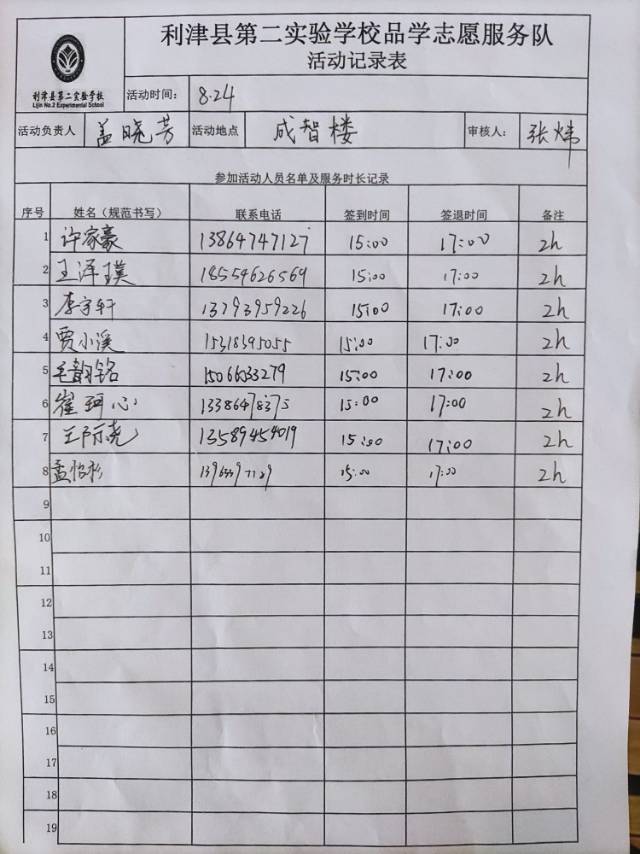 利津县第二实验学校品学志愿服务队
活动记录表
利津县第二实验学校
Lijin No.2 Experimental School
活动时间： 8.24
活动负责人 盖晓芳 活动地点 成智楼 审核人： 张炜
参加活动人员名单及服务时长记录
序号 姓名（规范书写） 联系电话 签到时间 签退时间 备注
1 许家豪 13864747127 15:00 17:00 2h
2 王泽璞 18554626569 15:00 17:00 2h
3 李宇轩 13793959226 15:00 17:00 2h
4 贾小溪 15318395055 15:00 17:00 2h
5 毛韵铭 15066033279 15:00 17:00 2h
6 崔珂心 13386478375 15:00 17:00 2h
7 王 13589454019 15:00 17:00 2h
8 孟怡杉 15:00 17:00 2h
9
10
11
12
13
14
15
16
17
18
19